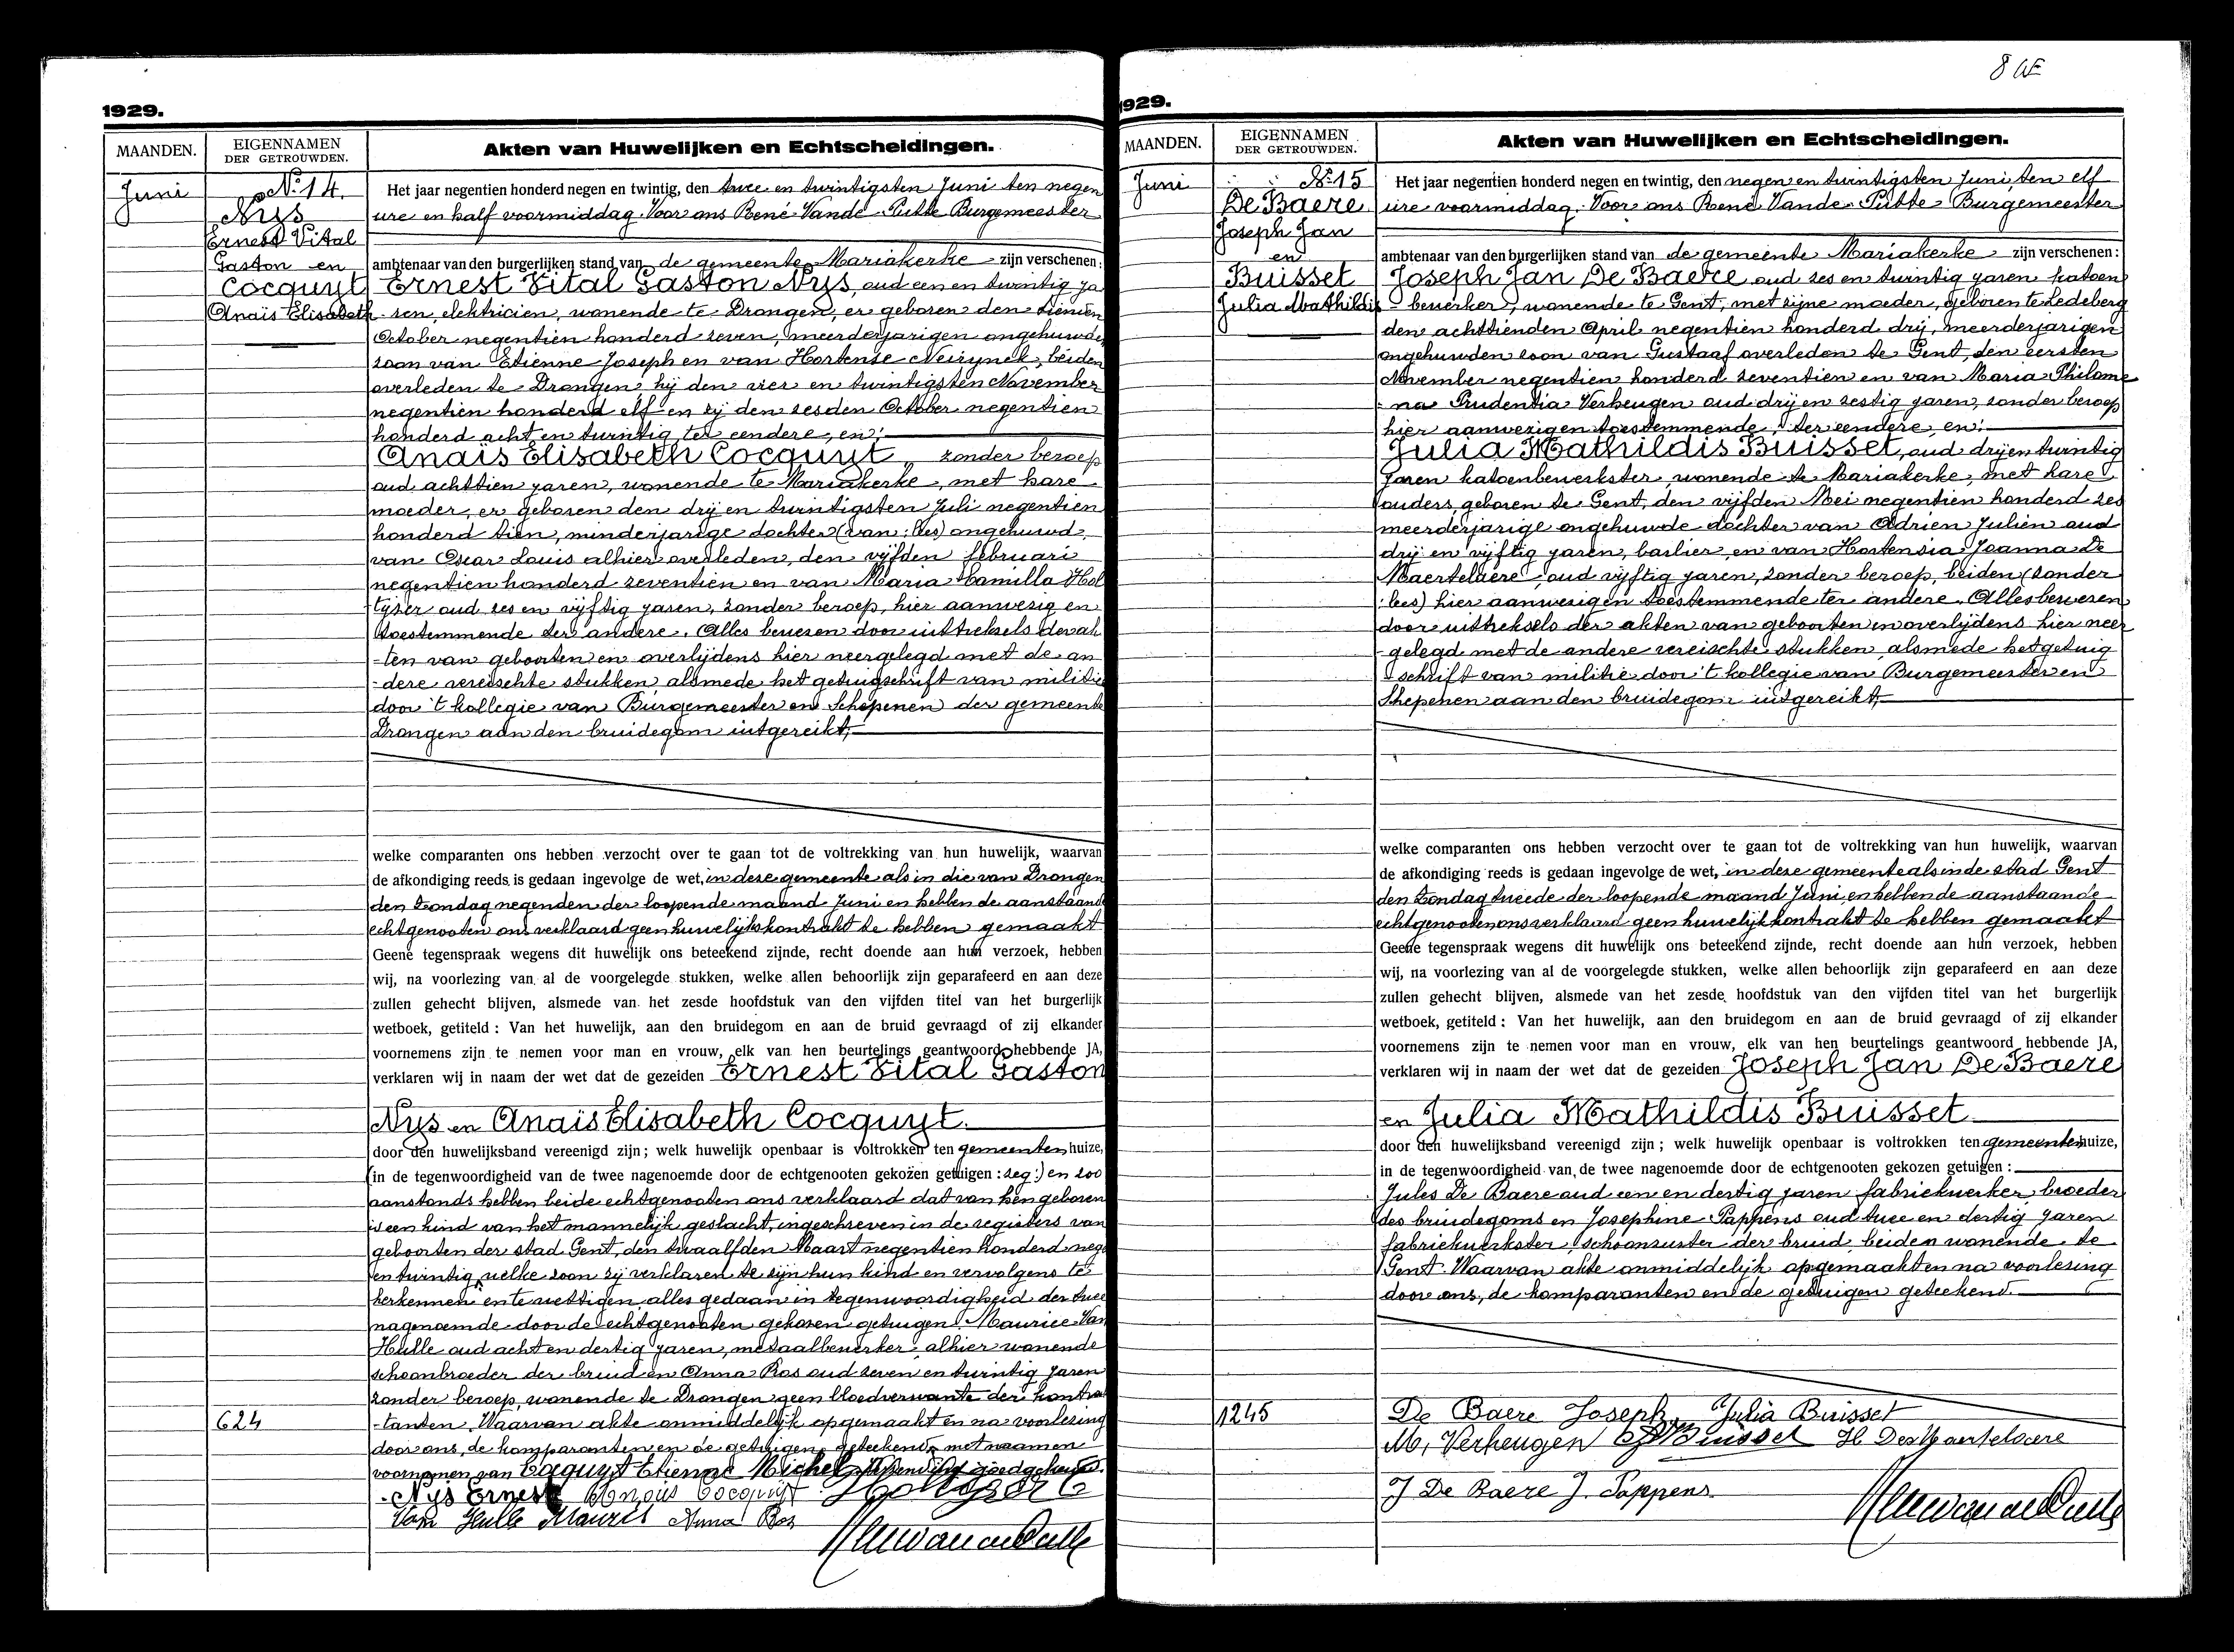 8 AE
1929.
MAANDEN.
EIGENNAMEN
DER GETROUWDEN.
Akten van Huwelijken en Echtscheidingen.
Juni
No. 14.
Nys
Ernest Vital
Gaston en
Cocquyt
Anaïs Elisabeth
Het jaar negentien honderd negen en twintig, den twee en twintigsten Juni ten negen
ure en half voormiddag. Voor ons René Vande Putte Burgemeester
ambtenaar van den burgerlijken stand van de gemeente Mariakerke zijn verschenen:
Ernest Vital Gaston Nys, oud een en twintig ja
ren, elektricien, wonende te Drongen, er geboren den tienden
October negentien honderd zeven, meerderjarigen ongehuwden
zoon van Etienne Joseph en van Hortense Neirynck, beiden
overleden te Drongen hij den vier en twintigsten November
negentien honderd elf en zij den zesden October negentien
honderd acht en twintig ter eendere, en:
Anaïs Elisabeth Cocquyt, zonder beroep
oud achttien jaren, wonende te Mariakerke, met hare
moeder, er geboren den drij en twintigsten Juli negentien
honderd tien, minderjarige dochter (van: lees) ongehuwd,
van Oscar Louis alhier overleden, den vijfden februari
negentien honderd zeventien en van Maria Camilla Hol
tyzer oud zes en vijftig jaren, zonder beroep, hier aanwezig en
toestemmende ter andere. Alles bewezen door uittreksels der ak
-ten van geboorten en overlijdens hier neergelegd met de an
-dere vereischte stukken, alsmede het getuigschrift van militie
door 't kollegie van Burgemeester en Schepenen der gemeente
Drongen aan den bruidegom uitgereikt,
welke comparanten ons hebben verzocht over te gaan tot de voltrekking van hun huwelijk, waarvan
de afkondiging reeds is gedaan ingevolge de wet, in deze gemeente als in die van Drongen
den Zondag negenden der loopende maand Juni en hebben de aanstaande
echtgenooten ons verklaard geen huwelijkskontrakt te hebben gemaakt
Geene tegenspraak wegens dit huwelijk ons beteekend zijnde, recht doende aan hun verzoek, hebben
wij, na voorlezing van al de voorgelegde stukken, welke allen behoorlijk zijn geparafeerd en aan deze
zullen gehecht blijven, alsmede van het zesde hoofdstuk van den vijfden titel van het burgerlijk
wetboek, getiteld : Van het huwelijk, aan den bruidegom en aan de bruid gevraagd of zij elkander
voornemens zijn te nemen voor man en vrouw, elk van hen beurtelings geantwoord hebbende JA,
verklaren wij in naam der wet dat de gezeiden Ernest Vital Gaston
Nys en Anaïs Elisabeth Cocquyt.
door den huwelijksband vereenigd zijn ; welk huwelijk openbaar is voltrokken ten gemeenten huize,
(in de tegenwoordigheid van de twee nagenoemde door de echtgenooten gekozen getuigen : zeg :) en zoo
aanstonds hebben beide echtgenooten ons verklaard dat van hen geboren
is een kind van het mannelijk geslacht, ingeschreven in de registers van
geboorten der stad Gent, den twaalfden Maart negentien honderd neg
en twintig, welke zoon zij verklaren te zijn hun kind en vervolgens te
herkennen en te wettigen, alles gedaan in tegenwoordigheid der twee
nagenoemde door de echtgenooten gekozen getuigen. Maurice Van
Hulle oud acht en dertig jaren, metaalbewerker, alhier wonende
schoonbroeder der bruid en Anna Ros oud zeven en twintig jaren
zonder beroep, wonende te Drongen geen bloedverwante der kontrak
-tanten. Waarvan akte onmiddelijk opgemaakt en na voorlezing
door ons, de komparanten en de getuigen geteekend, met naam en
voornamen van Coquyt Etienne Michel
Nys Ernest Anaïs Cocquyt
Van Hulle Mauris Anna Ros
624
1929.
MAANDEN.
EIGENNAMEN
DER GETROUWDEN.
Akten van Huwelijken en Echtscheidingen.
Juni
No. 15
De Baere
Joseph Jan
en
Buisset
Julia Mathildis
Het jaar negentien honderd negen en twintig, den negen en twintigsten Juni, ten elf
ure voormiddag. Voor ons René Vande Putte Burgemeester
ambtenaar van den burgerlijken stand van de gemeente Mariakerke zijn verschenen :
Joseph Jan De Baere oud zes en twintig jaren katoen
- bewerker, wonende te Gent, met zijne moeder, geboren te Ledeberg
den achttienden April negentien honderd drij, meerderjarigen
ongehuwden zoon van Gustaaf overleden te Gent, den eersten
November negentien honderd zeventien en van Maria Philome
- na Prudentia Verheugen oud drij en zestig jaren, zonder beroep
hier aanwezig en toestemmende, ter eendere, en:
Julia Mathildis Buisset, oud drij en twintig
jaren katoenbewerkster, wonende te Mariakerke, met hare
ouders, geboren te Gent, den vijfden Mei negentien honderd zes
meerderjarige ongehuwde dochter van Adrien Julien oud
drij en vijftig jaren, barbier, en van Hortensia Joanna De
Maertelaere, oud vijftig jaren, zonder beroep, beiden (zonder
: lees) hier aanwezig en toestemmende ter andere. Alles bewezen
door uittreksels der akten van geboorten en overlijdens hier neer
-gelegd met de andere vereischte stukken, alsmede het getuig
- schrift van militie door 't kollegie van Burgemeester en
Shepenen aan den bruidegom uitgereikt,
welke comparanten ons hebben verzocht over te gaan tot de voltrekking van hun huwelijk, waarvan
de afkondiging reeds is gedaan ingevolge de wet, in deze gemeente als in de stad Gent
den Zondag tweede der loopende maand Juni, en hebben de aanstaande
echtgenooten ons verklaard geen huwelijkkontrakt te hebben gemaakt
Geene tegenspraak wegens dit huwelijk ons beteekend zijnde, recht doende aan hun verzoek, hebben
wij, na voorlezing van al de voorgelegde stukken, welke allen behoorlijk zijn geparafeerd en aan deze
zullen gehecht blijven, alsmede van het zesde hoofdstuk van den vijfden titel van het burgerlijk
wetboek, getiteld : Van het huwelijk, aan den bruidegom en aan de bruid gevraagd of zij elkander
voornemens zijn te nemen voor man en vrouw, elk van hen beurtelings geantwoord hebbende JA,
verklaren wij in naam der wet dat de gezeiden Joseph Jan De Baere
en Julia Mathildis Buisset
door den huwelijksband vereenigd zijn ; welk huwelijk openbaar is voltrokken ten gemeenten huize,
in de tegenwoordigheid van de twee nagenoemde door de echtgenooten gekozen getuigen :
Jules De Baere oud een en dertig jaren fabriekwerker, broeder
des bruidegoms en Josephine Pappens oud twee en dertig jaren
fabriekwerkster, schoonzuster der bruid, beiden wonende te
Gent. Waarvan akte onmiddelijk opgemaakt en na voorlezing
door ons, de komparanten en de getuigen geteekend.
De Baere Joseph, Julia Buisset
M, Verheugen Buisset H De Maertelaere
J De Baere J. Pappens
1245